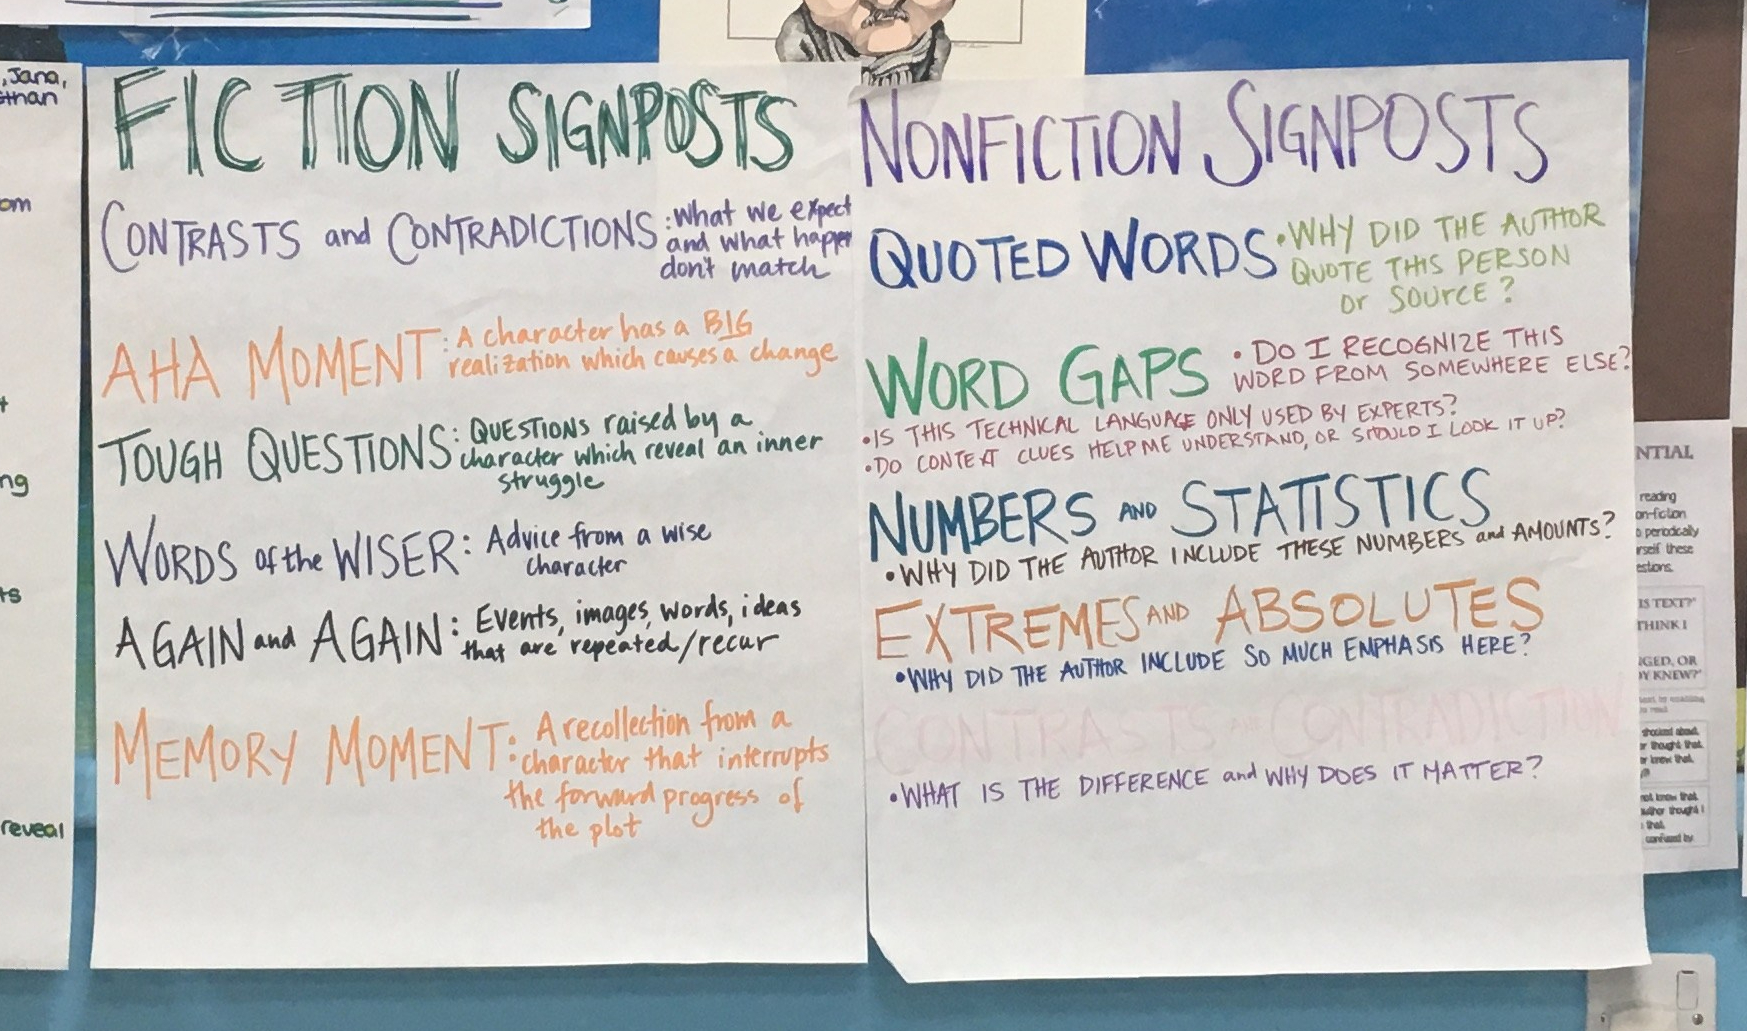 , Jana,
om
ng
reveal
FICTION SIGNPOSTS
CONTRASTS and CONTRADICTIONS: What we expect
and what happen
don't match
AHA MOMENT: A character has a BIG
realization which causes a change
TOUGH QUESTIONS: QUESTIONS raised by a
character which reveal an inner
struggle
WORDS of the WISER: Advice from a wise
character
AGAIN and AGAIN: Events, images, words, ideas
that are repeated/recur
MEMORY MOMENT: A recollection from a
character that interrupts
the forward progress of
the plot
NONFICTION SIGNPOSTS
QUOTED WORDS • WHY DID THE AUTHOR
QUOTE THIS PERSON
or SOURCE?
WORD GAPS • DO I RECOGNIZE THIS
WORD FROM SOMEWHERE ELSE?
• IS THIS TECHNICAL LANGUAGE ONLY USED BY EXPERTS?
• DO CONTEXT CLUES HELP ME UNDERSTAND, OR SHOULD I LOOK IT UP?
NUMBERS AND STATISTICS
• WHY DID THE AUTHOR INCLUDE THESE NUMBERS and AMOUNTS?
EXTREMES AND ABSOLUTES
• WHY DID THE AUTHOR INCLUDE SO MUCH EMPHASIS HERE?
CONTRASTS AND CONTRADICTION
• WHAT IS THE DIFFERENCE and WHY DOES IT MATTER?
NTIAL
reading
on-fiction
periodically
rself these
estions.
IS TEXT?"
THINK I
NGED, OR
Y KNEW?"
shocked about.
r thought that.
er knew that.
not know that.
author thought I
that.
confused by